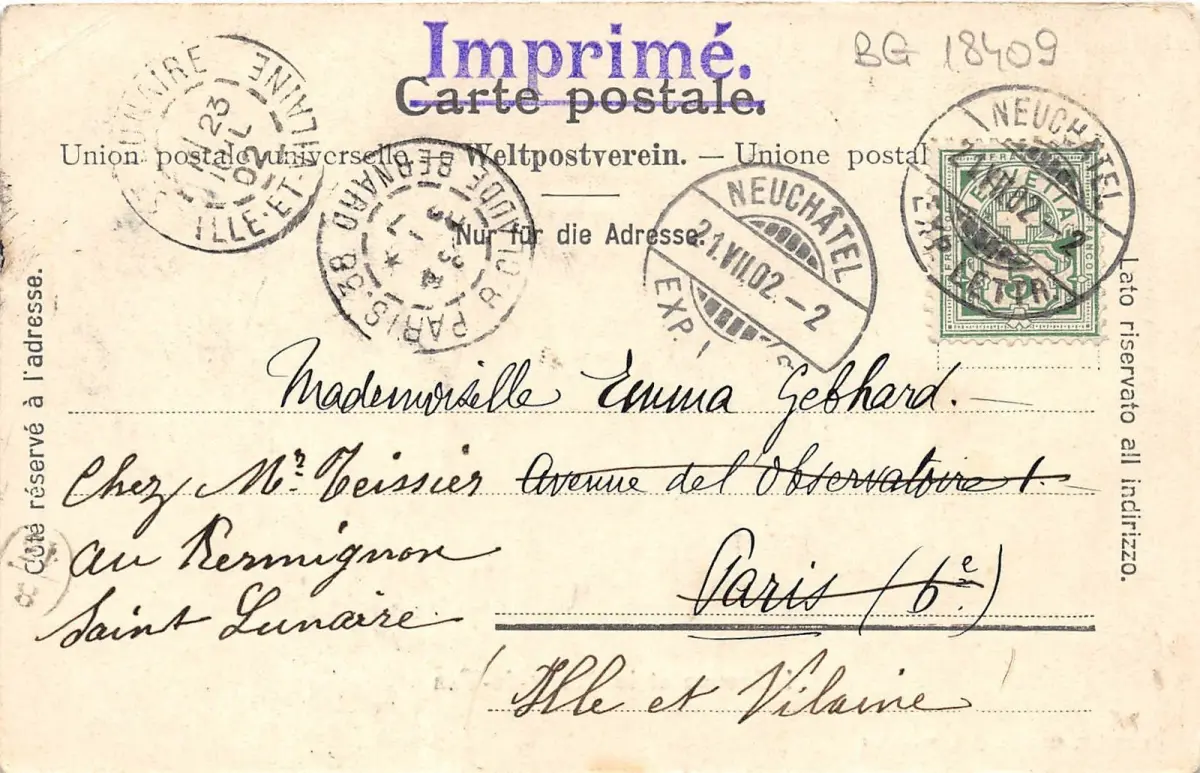 Imprimé.
BG 18409
Carte postale.
Union postale universelle. — Weltpostverein. — Unione postal
Nur für die Adresse.
ILLE-ET-VILAINE
23
JUIL
02
PARIS·38 R. CLAUDE BERNARD
NEUCHÂTEL
21.VII.02.–2
EXP. L
NEUCHÂTEL
21.VII.02.–2
EXP. LETTR
FRANCO
HELVETIA
5
Côté réservé à l'adresse.
Lato riservato all indirizzo.
Mademoiselle Emma Gebhard.
Chez Mr. Teissier Avenue de l'Observatoire 1.
au Kermignon
Paris (6e.)
Saint Lunaire
Ille et Vilaine